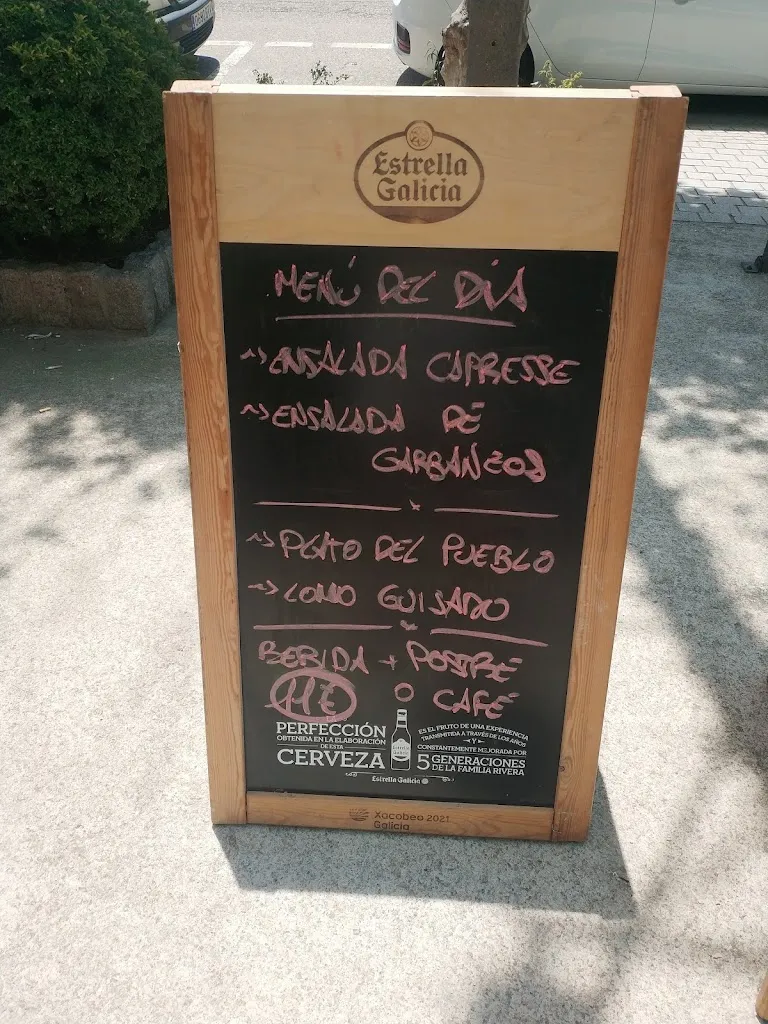 Estrella
Galicia
MENÚ DEL DÍA
~> ENSALADA CAPRESSE
~> ENSALADA DE
GARBANZOS
~> PLATO DEL PUEBLO
~> LOMO GUISADO
BEBIDA + POSTRE
11€ O CAFÉ
PERFECCIÓN
OBTENIDA EN LA ELABORACIÓN
DE ESTA
CERVEZA
ES EL FRUTO DE UNA EXPERIENCIA
TRANSMITIDA A TRAVÉS DE LOS AÑOS
Y
CONSTANTEMENTE MEJORADA POR
5 GENERACIONES
DE LA FAMILIA RIVERA
Estrella Galicia
Xacobeo 2021
Galicia